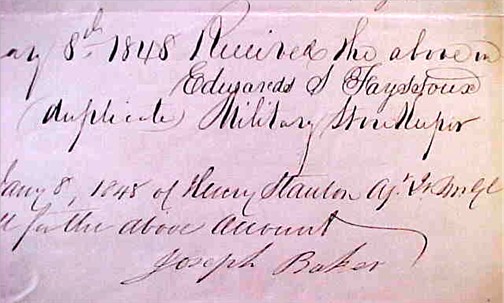 ay 8th 1848 Received the above in
Edwards S Fayssoux
(duplicate) Military Store Keeper
Jany 8, 1848 of Henry Stanton
for the above Account
Joseph Baker